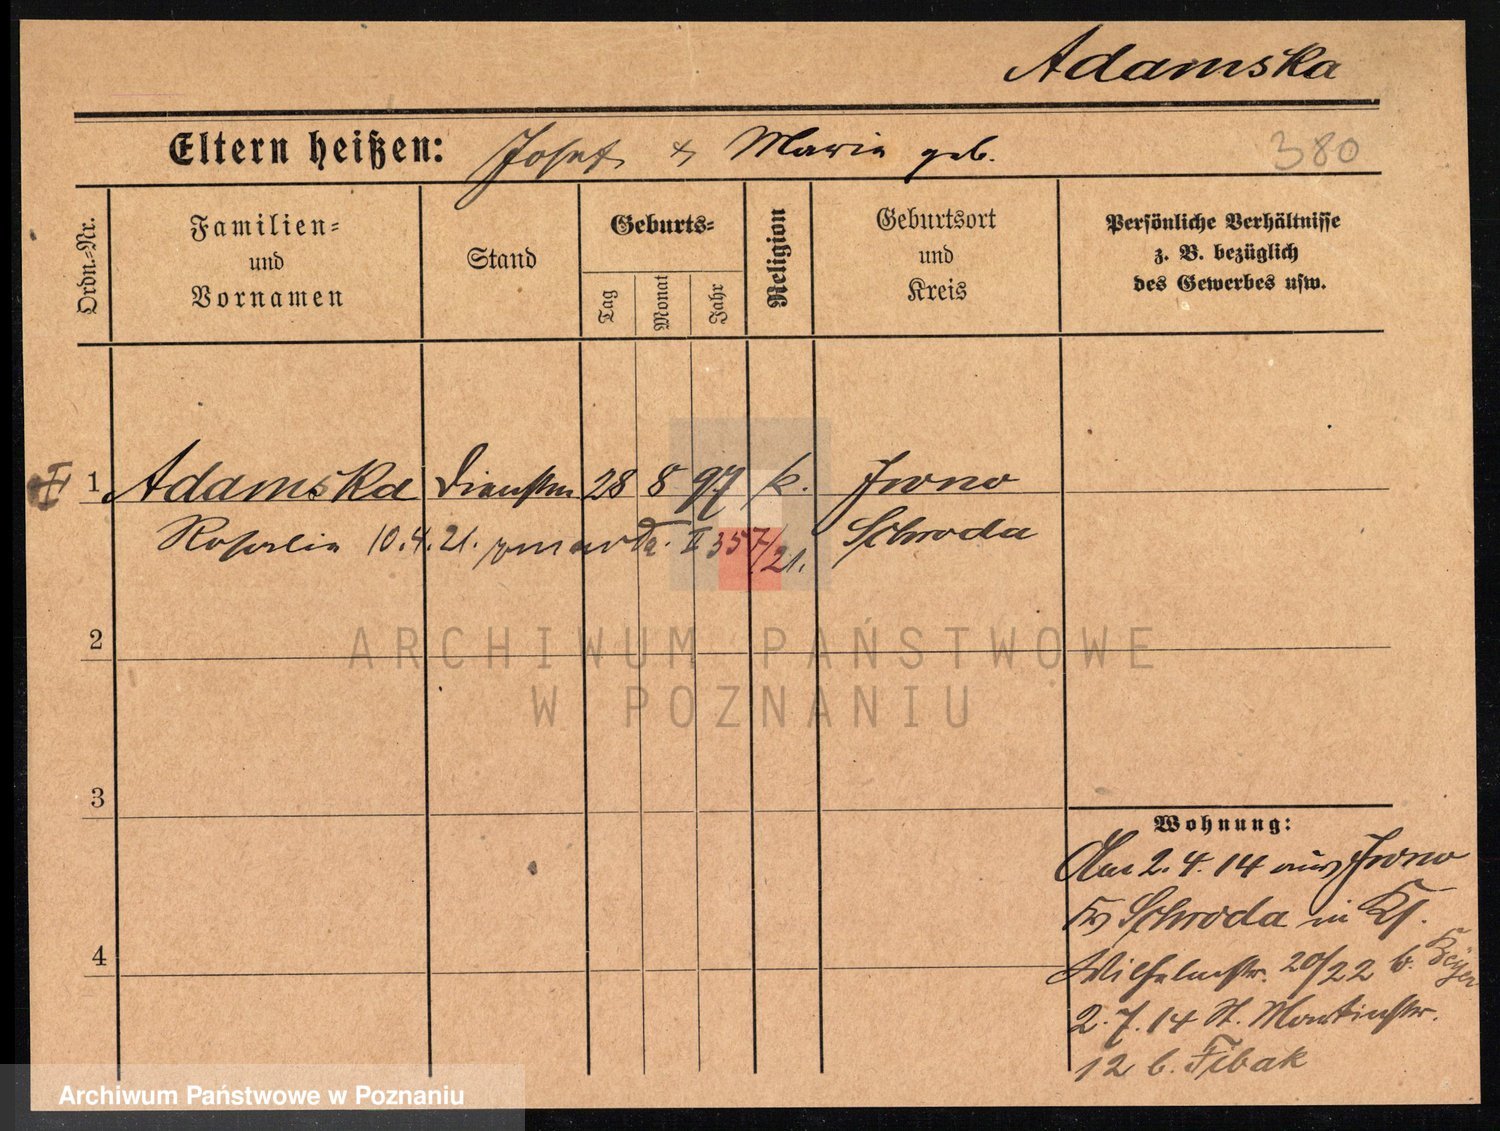 Adamska
Eltern heißen: Josef & Maria geb.
380
Ordn.-Nr.
Familien-
und
Vornamen
Stand
Geburts-
Tag
Monat
Jahr
Religion
Geburtsort
und
Kreis
Persönliche Verhältnisse
z. B. bezüglich
des Gewerbes usw.
1 Adamska 28 8 97 k.
10.4.21. II 357/21. Schroda
2
ARCHIWUM PAŃSTWOWE
W POZNANIU
3
4
Wohnung:
Am 2.4.14 aus
Schroda in
Wilhelmstr. 20/22 b.
2.7.14 St. Martinstr.
12 b. Fibak
Archiwum Państwowe w Poznaniu